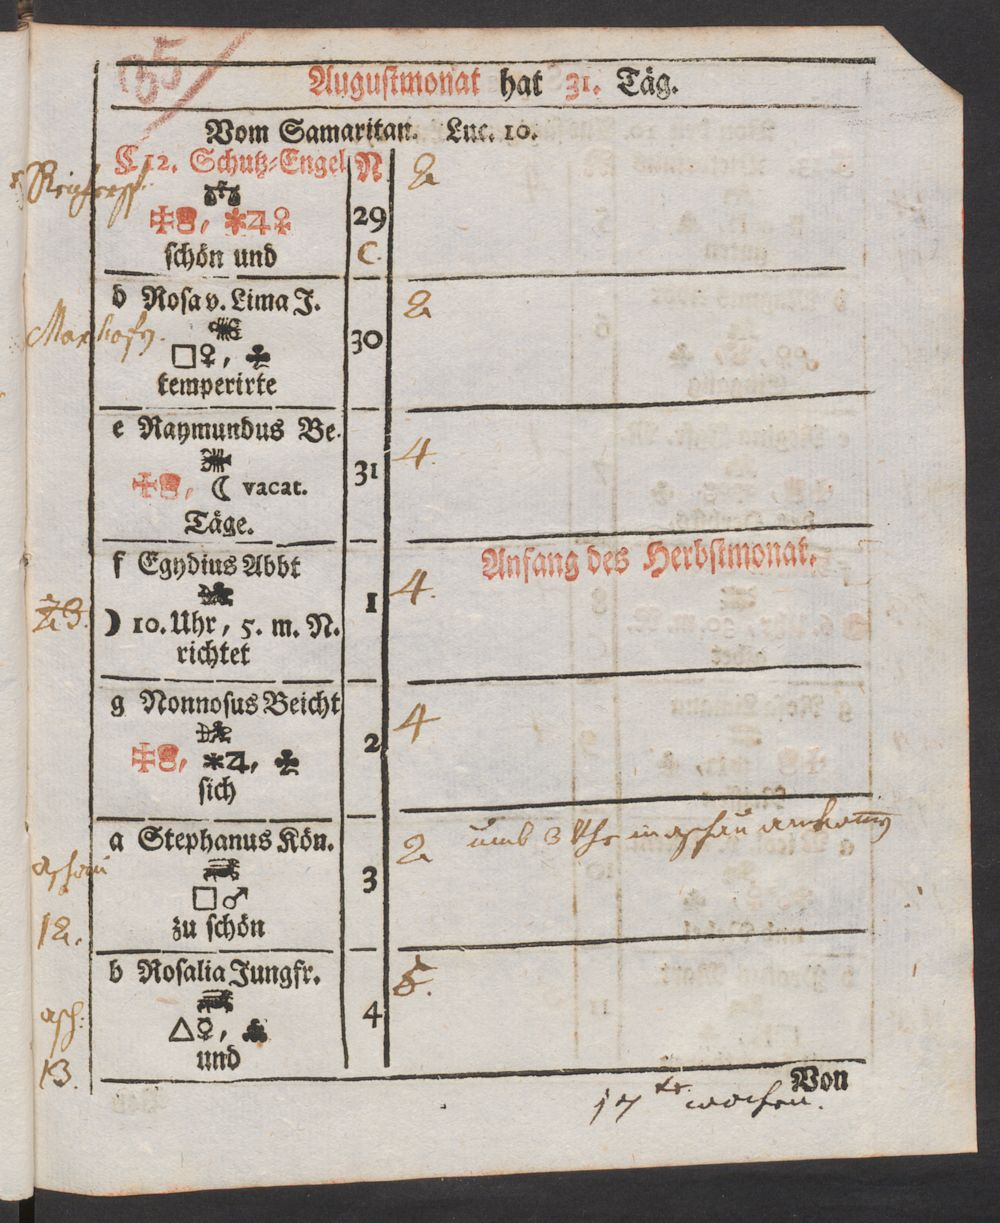 65
Augustmonat hat 31. Täg.
Vom Samaritan. Luc. 10.
C 12. Schutz-Engel N 2
29
schön und C.
d Rosa v. Lima J. 2
□♀, ♣ 30
temperirte
e Raymundus Be. 4.
☾ vacat. 31
Täge.
Anfang des Herbstmonat.
f Egydius Abbt 4.
1
23. ☽ 10. Uhr, 5. m. N.
richtet
g Nonnosus Beicht 4
2
sich
a Stephanus Kön. 2 umb 3 Uhr in aschau
aschau
□♂ 3
12. zu schön
b Rosalia Jungfr. 5.
asch: △☿, ♣ 4
13. und
Von
17 te wochen.